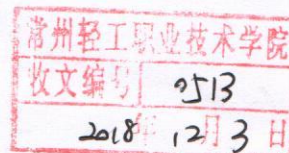 常州轻工职业技术学院
收文编号 0513
2018年12月3日